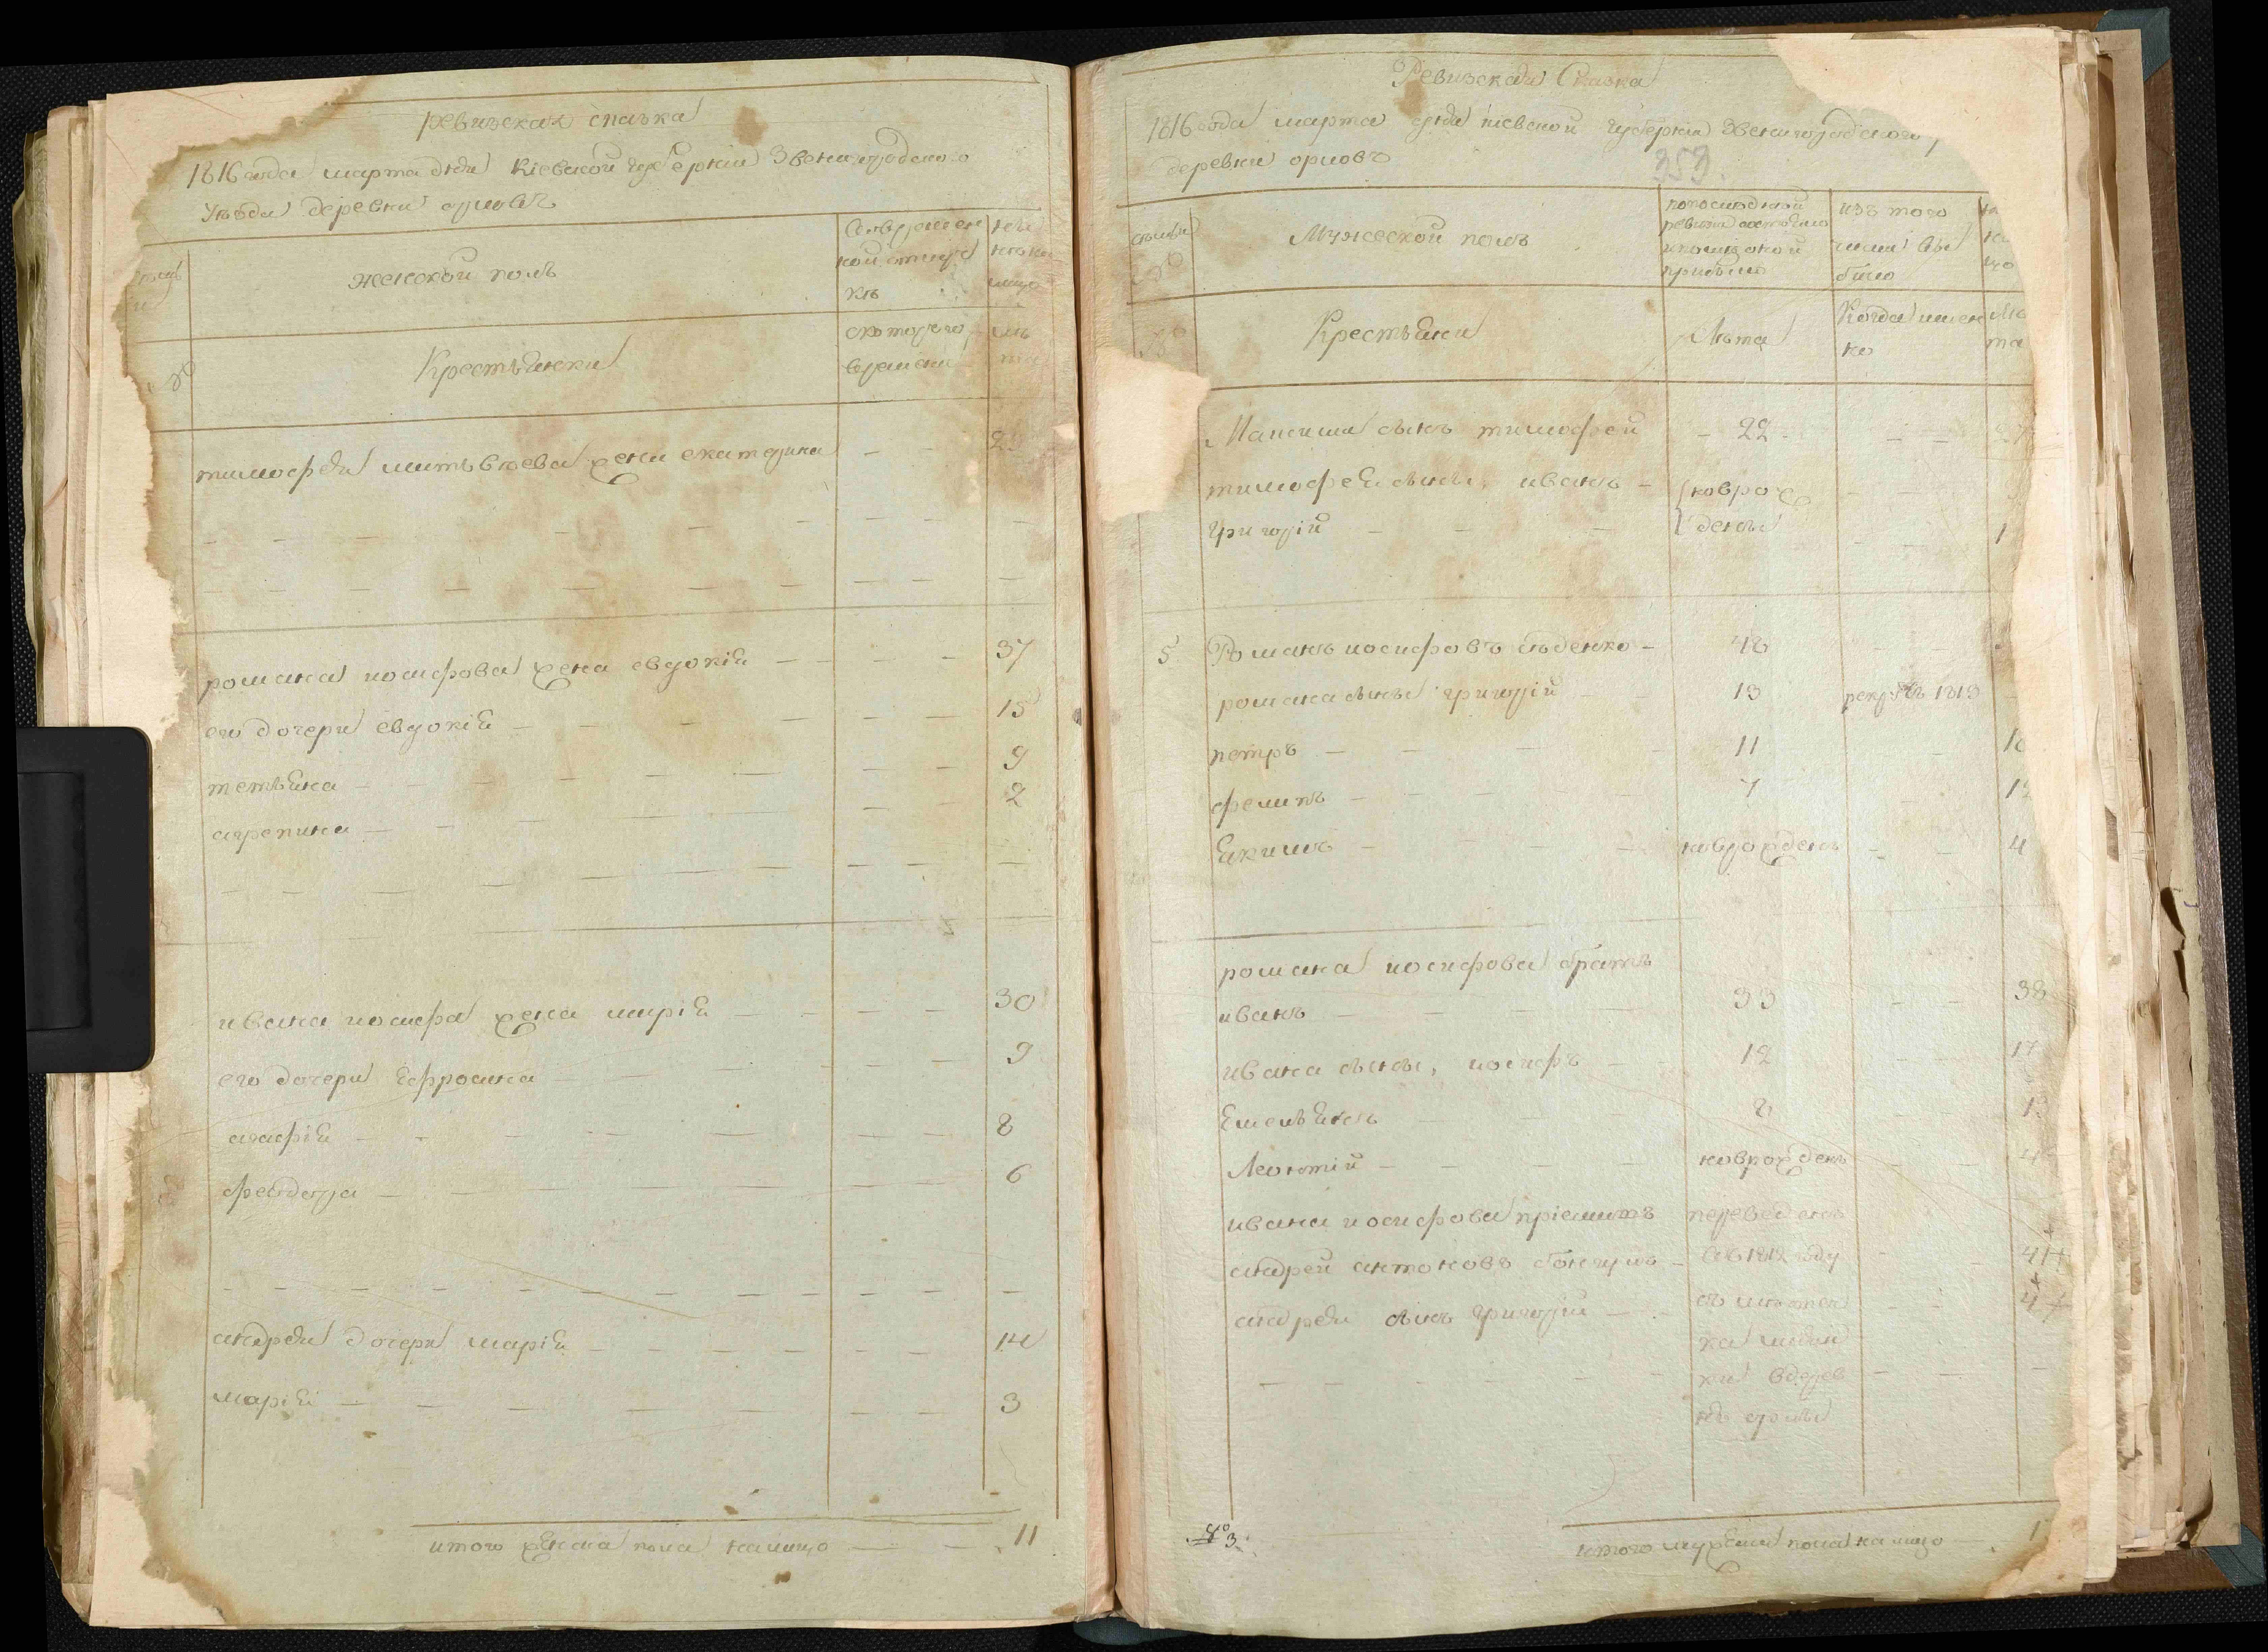 ревизская сказка
1816 года марта дня Кіевской губерніи Звенигородского
Уѣзда деревни орловъ
женской полъ
во временной отлучкѣ
№
Крестьянки
съ которого времяни
лѣта
тимофея матвѣева жена екатерина — — 2
— — — — — —
— — — — — —
романа иосифова жена евдокія — — 37
его дочери евдокія — — 15
тетьяна — — 9
агрепина — — 2
— — — — — —
ивана иосифа жена марія — — 30
его дочери Ефросина — — 9
агафія — — 8
феодора — — 6
— — — — — —
андрея дочери марія — — 14
марія — — 3
итого женска пола налицо — — 11
Ревизская Сказка
1816 года марта дня кіевской губерніи Звенигородского
деревни орловъ
353.
семьи
№
Мужеской полъ
по последней ревизіи состояло и после оной прибыло
изъ того числа выбыло
№
Крестьяне
Лѣта
Когда именно
Лѣта
Максима сынъ тимофей — 22 — —
тимофея сыны, иванъ — новорож
григорій — — — дены — — 1
5 Романъ иосифовъ — 48 — —
романа сыны григорій — 13 рекр: въ 1813
петръ — — 11 — 16
филипъ — — 7 — 12
Екимъ — — новорожденъ — — 4
романа иосифова братъ
иванъ — — 33 — — 38
ивана сыны, иосифъ — 12 — — 17
Емельянъ — 8 — 13
Леонтій — — новорожденъ — 4
ивана иосифова пріемышъ переведенъ
андрей антоновъ — въ 1812 году — 41
андрея сынъ григорій — съ местеч — — 4
ка
ки в дерев
— — — — — —
итого мужеска пола налицо — 1